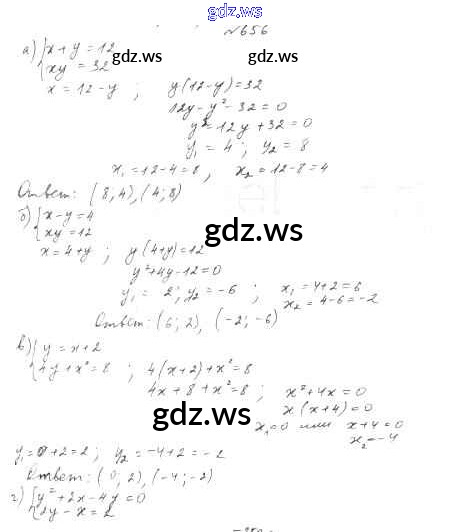 gdz.ws
№656
а) { x + y = 12
gdz.ws
{ xy = 32
gdz.ws
x = 12 - y ; y(12-y) = 32
12y - y² - 32 = 0
y² - 12y + 32 = 0
y₁ = 4 ; y₂ = 8
x₁ = 12 - 4 = 8 , x₂ = 12 - 8 = 4
Ответ: (8; 4), (4; 8)
б) { x - y = 4
{ xy = 12
gdz.ws
x = 4 + y ; y(4+y) = 12
y² + 4y - 12 = 0
y₁ = 2 ; y₂ = -6 ; x₁ = 4 + 2 = 6
x₂ = 4 - 6 = -2
Ответ: (6; 2), (-2; -6)
gdz.ws
в) { y = x + 2
{ 4y + x² = 8 ; 4(x+2) + x² = 8
4x + 8 + x² = 8 ; x² + 4x = 0
x(x+4) = 0
gdz.ws
x₁ = 0 или x + 4 = 0
x₂ = -4
y₁ = 0 + 2 = 2 ; y₂ = -4 + 2 = -2
Ответ: (0; 2), (-4; -2)
г) { y² + 2x - 4y = 0
{ 2y - x = 2
gdz.ws